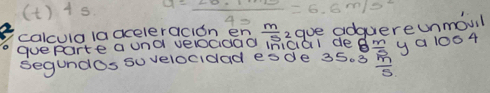 (t) 4 s.
4s = 6.6 m/s²
calcula la aceleración en m/s² que adquiere un movil
que parte a una velocidad inicial de 8 m/s y a los 4
segundos su velocidad es de 35.3 m/s